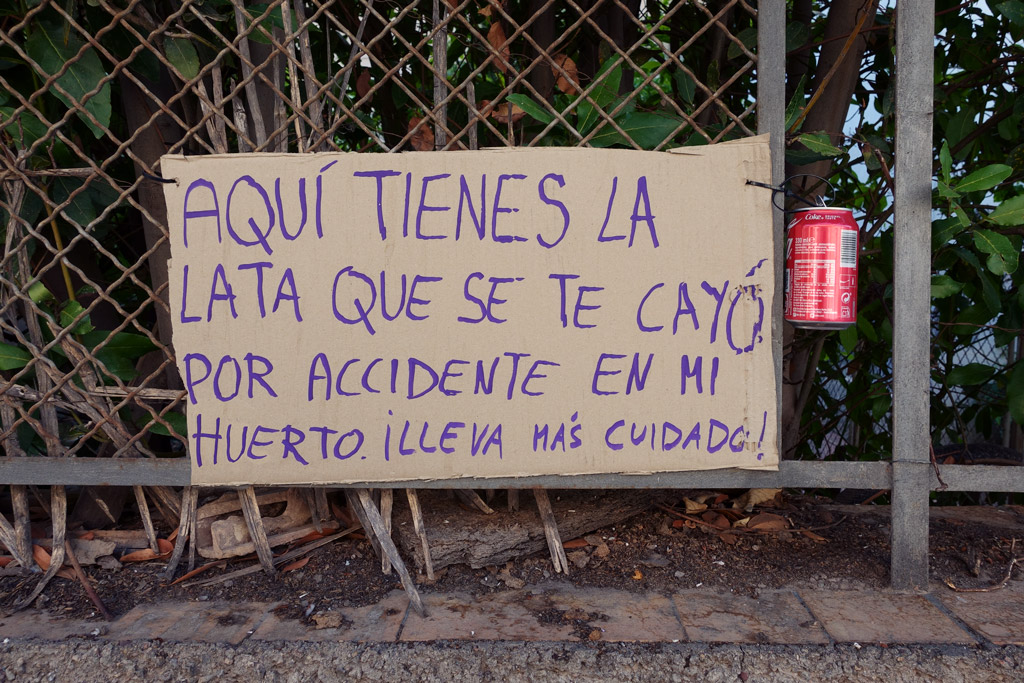 AQUÍ TIENES LA
LATA QUE SE TE CAYÓ
POR ACCIDENTE EN MI
HUERTO. ¡LLEVA MÁS CUIDADO!
Coke
330 ml